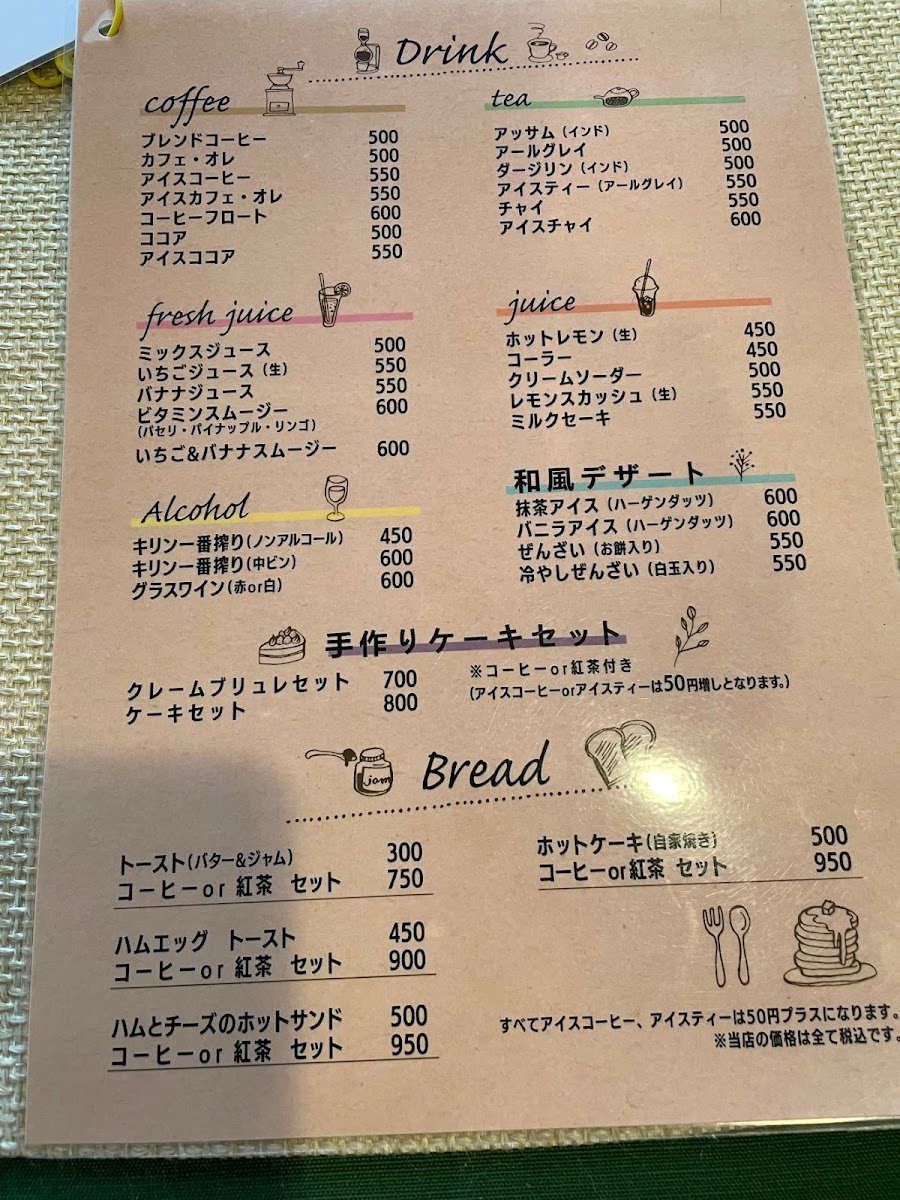 Drink
coffee
ブレンドコーヒー 500
カフェ・オレ 500
アイスコーヒー 550
アイスカフェ・オレ 550
コーヒーフロート 600
ココア 500
アイスココア 550
tea
アッサム（インド） 500
アールグレイ 500
ダージリン（インド） 500
アイスティー（アールグレイ） 550
チャイ 550
アイスチャイ 600
fresh juice
ミックスジュース 500
いちごジュース（生） 550
バナナジュース 550
ビタミンスムージー 600
（パセリ・パイナップル・リンゴ）
いちご&バナナスムージー 600
juice
ホットレモン（生） 450
コーラー 450
クリームソーダー 500
レモンスカッシュ（生） 550
ミルクセーキ 550
Alcohol
キリン一番搾り（ノンアルコール） 450
キリン一番搾り（中ビン） 600
グラスワイン（赤or白） 600
和風デザート
抹茶アイス（ハーゲンダッツ） 600
バニラアイス（ハーゲンダッツ） 600
ぜんざい（お餅入り） 550
冷やしぜんざい（白玉入り） 550
手作りケーキセット
クレームブリュレセット 700
ケーキセット 800
※コーヒーor紅茶付き
（アイスコーヒーorアイスティーは50円増しとなります。）
jam
Bread
トースト（バター&ジャム） 300
コーヒーor 紅茶 セット 750
ハムエッグ トースト 450
コーヒーor 紅茶 セット 900
ハムとチーズのホットサンド 500
コーヒーor 紅茶 セット 950
ホットケーキ（自家焼き） 500
コーヒーor紅茶 セット 950
すべてアイスコーヒー、アイスティーは50円プラスになります。
※当店の価格は全て税込です。